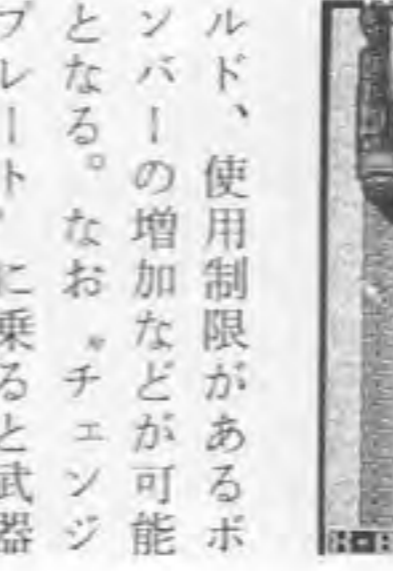 ルド、使用制限があるボ
ンバーの増加などが可能
となる。なお〝チェンジ
プレート〟に乗ると武器